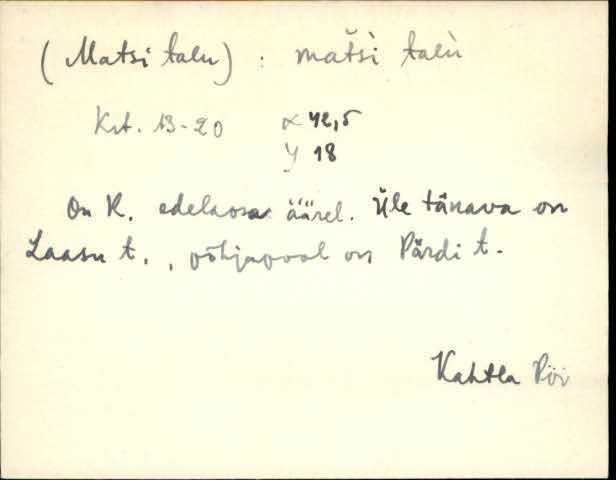 (Matsi talu) : matši talù
Krt. 13-20 x 42,5
y 18
On K. edelaosa äärel. Üle tänava on
Laasu t., põhjapool on Pärdi t.
Kahtla Pöi